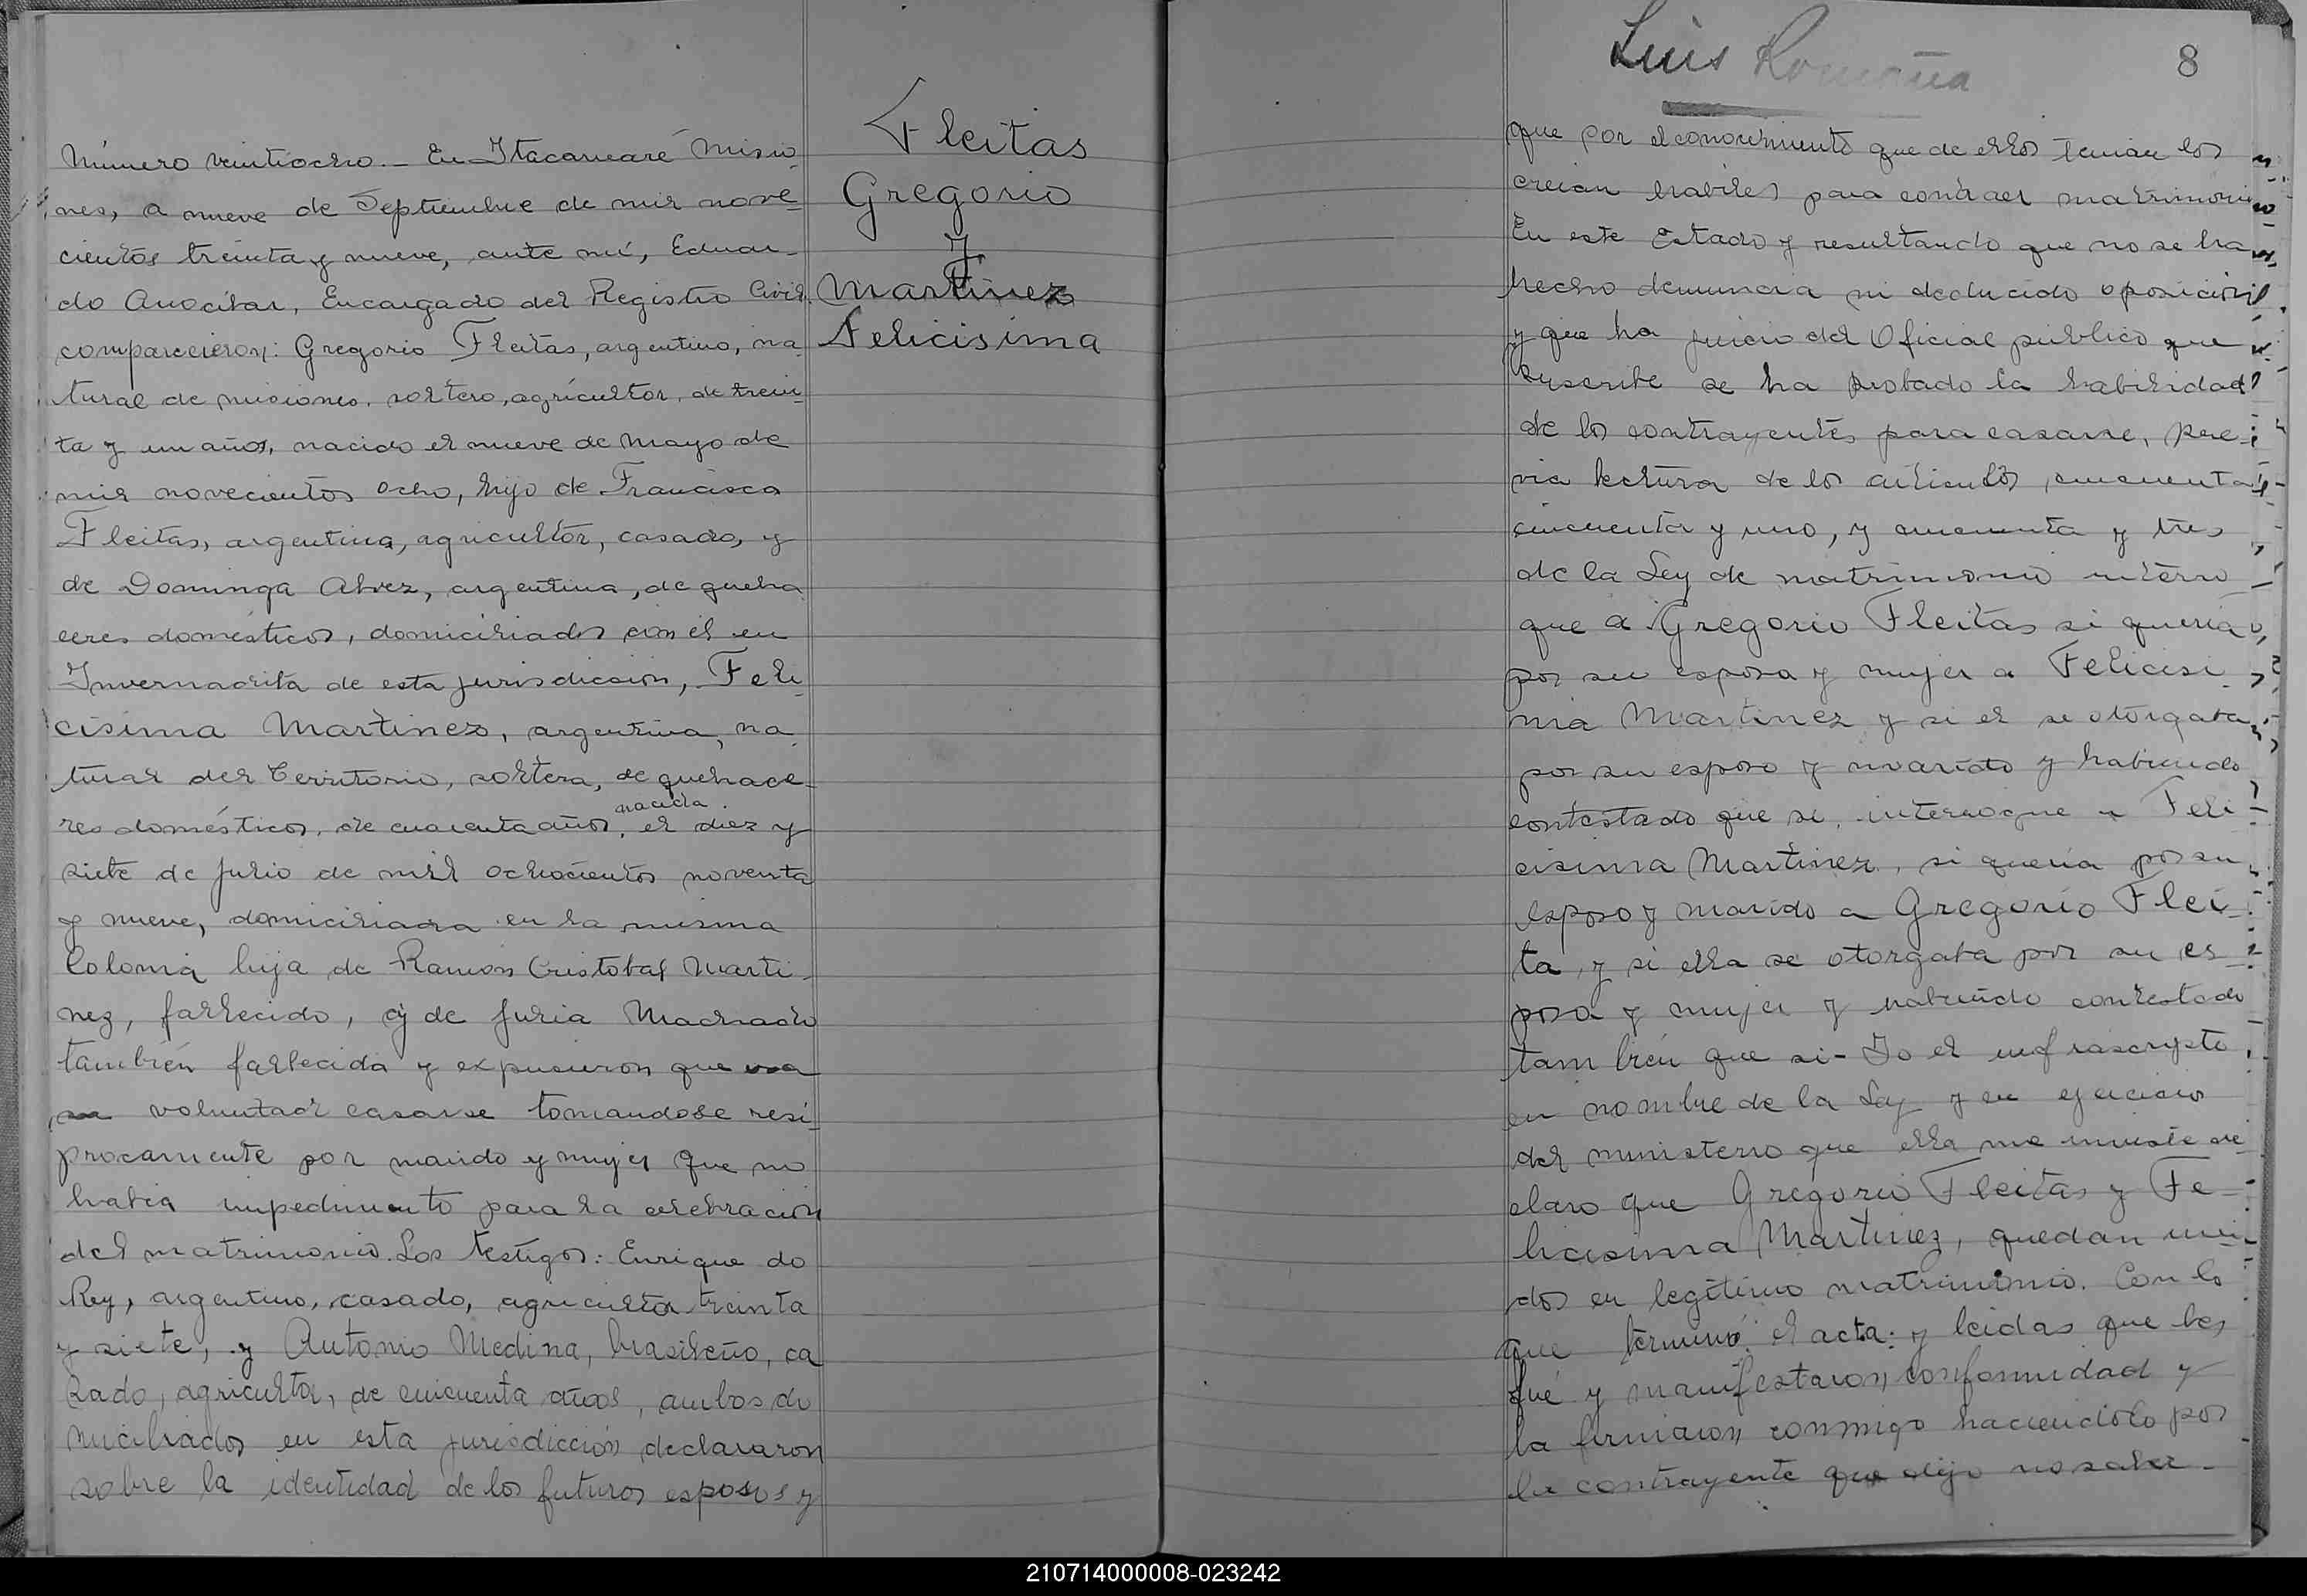 Número veintiocho.- En Itacaruaré Misio
nes, a nueve de Septiembre de mil nove-
cientos treinta y nueve, ante mí, Eduar-
do Anocibar, Encargado del Registro Civil.
comparecieron: Gregorio Fleitas, argentino, na
tural de misiones, soltero, agricultor, de trein-
ta y un años, nacido el nueve de Mayo de
mil novecientos ocho, hijo de Francisco
Fleitas, argentina, agricultor, casado, y
de Dominga Alvez, argentina, de queha
ceres domésticos, domiciliados con él en
Invernadita de esta jurisdiccion, Feli-
cisima Martinez, argentina, na
tural del Territorio, soltera, de quehace-
nacida
res domésticos, de cuarenta años, el diez y
siete de Julio de mil ochocientos noventa
y nueve, domiciliada en la misma
Colonia hija de Ramón Cristobal Marti-
nez, fallecido, y de Julia Machado
también fallecida y expusieron que era
su voluntad casarse tomandose resi-
procamente por marido y mujer que no
habia impedimento para la celebración
del matrimonio. Los testigos: Enrique do
Rey, argentino, casado, agricultor treinta
y siete, y Antonio Medina, brasileño, ca
sado, agricultor, de cincuenta años, ambos do
miciliados en esta jurisdicción declararon
sobre la identidad de los futuros esposos y
Fleitas
Gregorio
y
Martinez
Felicisima
Luis Romaña
8
que por el conocimiento que de ellos tenian los
creian habiles para contraer matrimonio
En este Estado y resultando que no se ha
hecho denuncia ni deducido oposición
y que ha juicio del Oficial público que
suscribe se ha probado la habilidad
de los contrayentes para casarse, pre-
via lectura de los artículos cincuenta
cincuenta y uno, y cincuenta y tres
de la Ley de matrimonio interro
que a Gregorio Fleitas si queria
por su esposa y mujer a Felicisi
ma Martinez y si el se otorgaba
por su esposo y marido y habiendo
contestado que si, interroque a Feli
cisima Martinez, si queria por su
esposo y marido a Gregorio Flei-
ta, y si ella se otorgaba por su es-
posa y mujer y habiendo contestado
también que si- Yo el infrascripto
en nombre de la Ley y en ejercicio
del ministerio que ella me inviste de-
claro que Gregorio Fleitas y Fe-
licisima Martinez, quedan uni-
dos en legítimo matrimonio. Con lo
que terminó el acta: y leidas que les
fué y manifestaron conformidad y
la firmaron conmigo haciendolo por
la contrayente que dijo no saber-
210714000008-023242